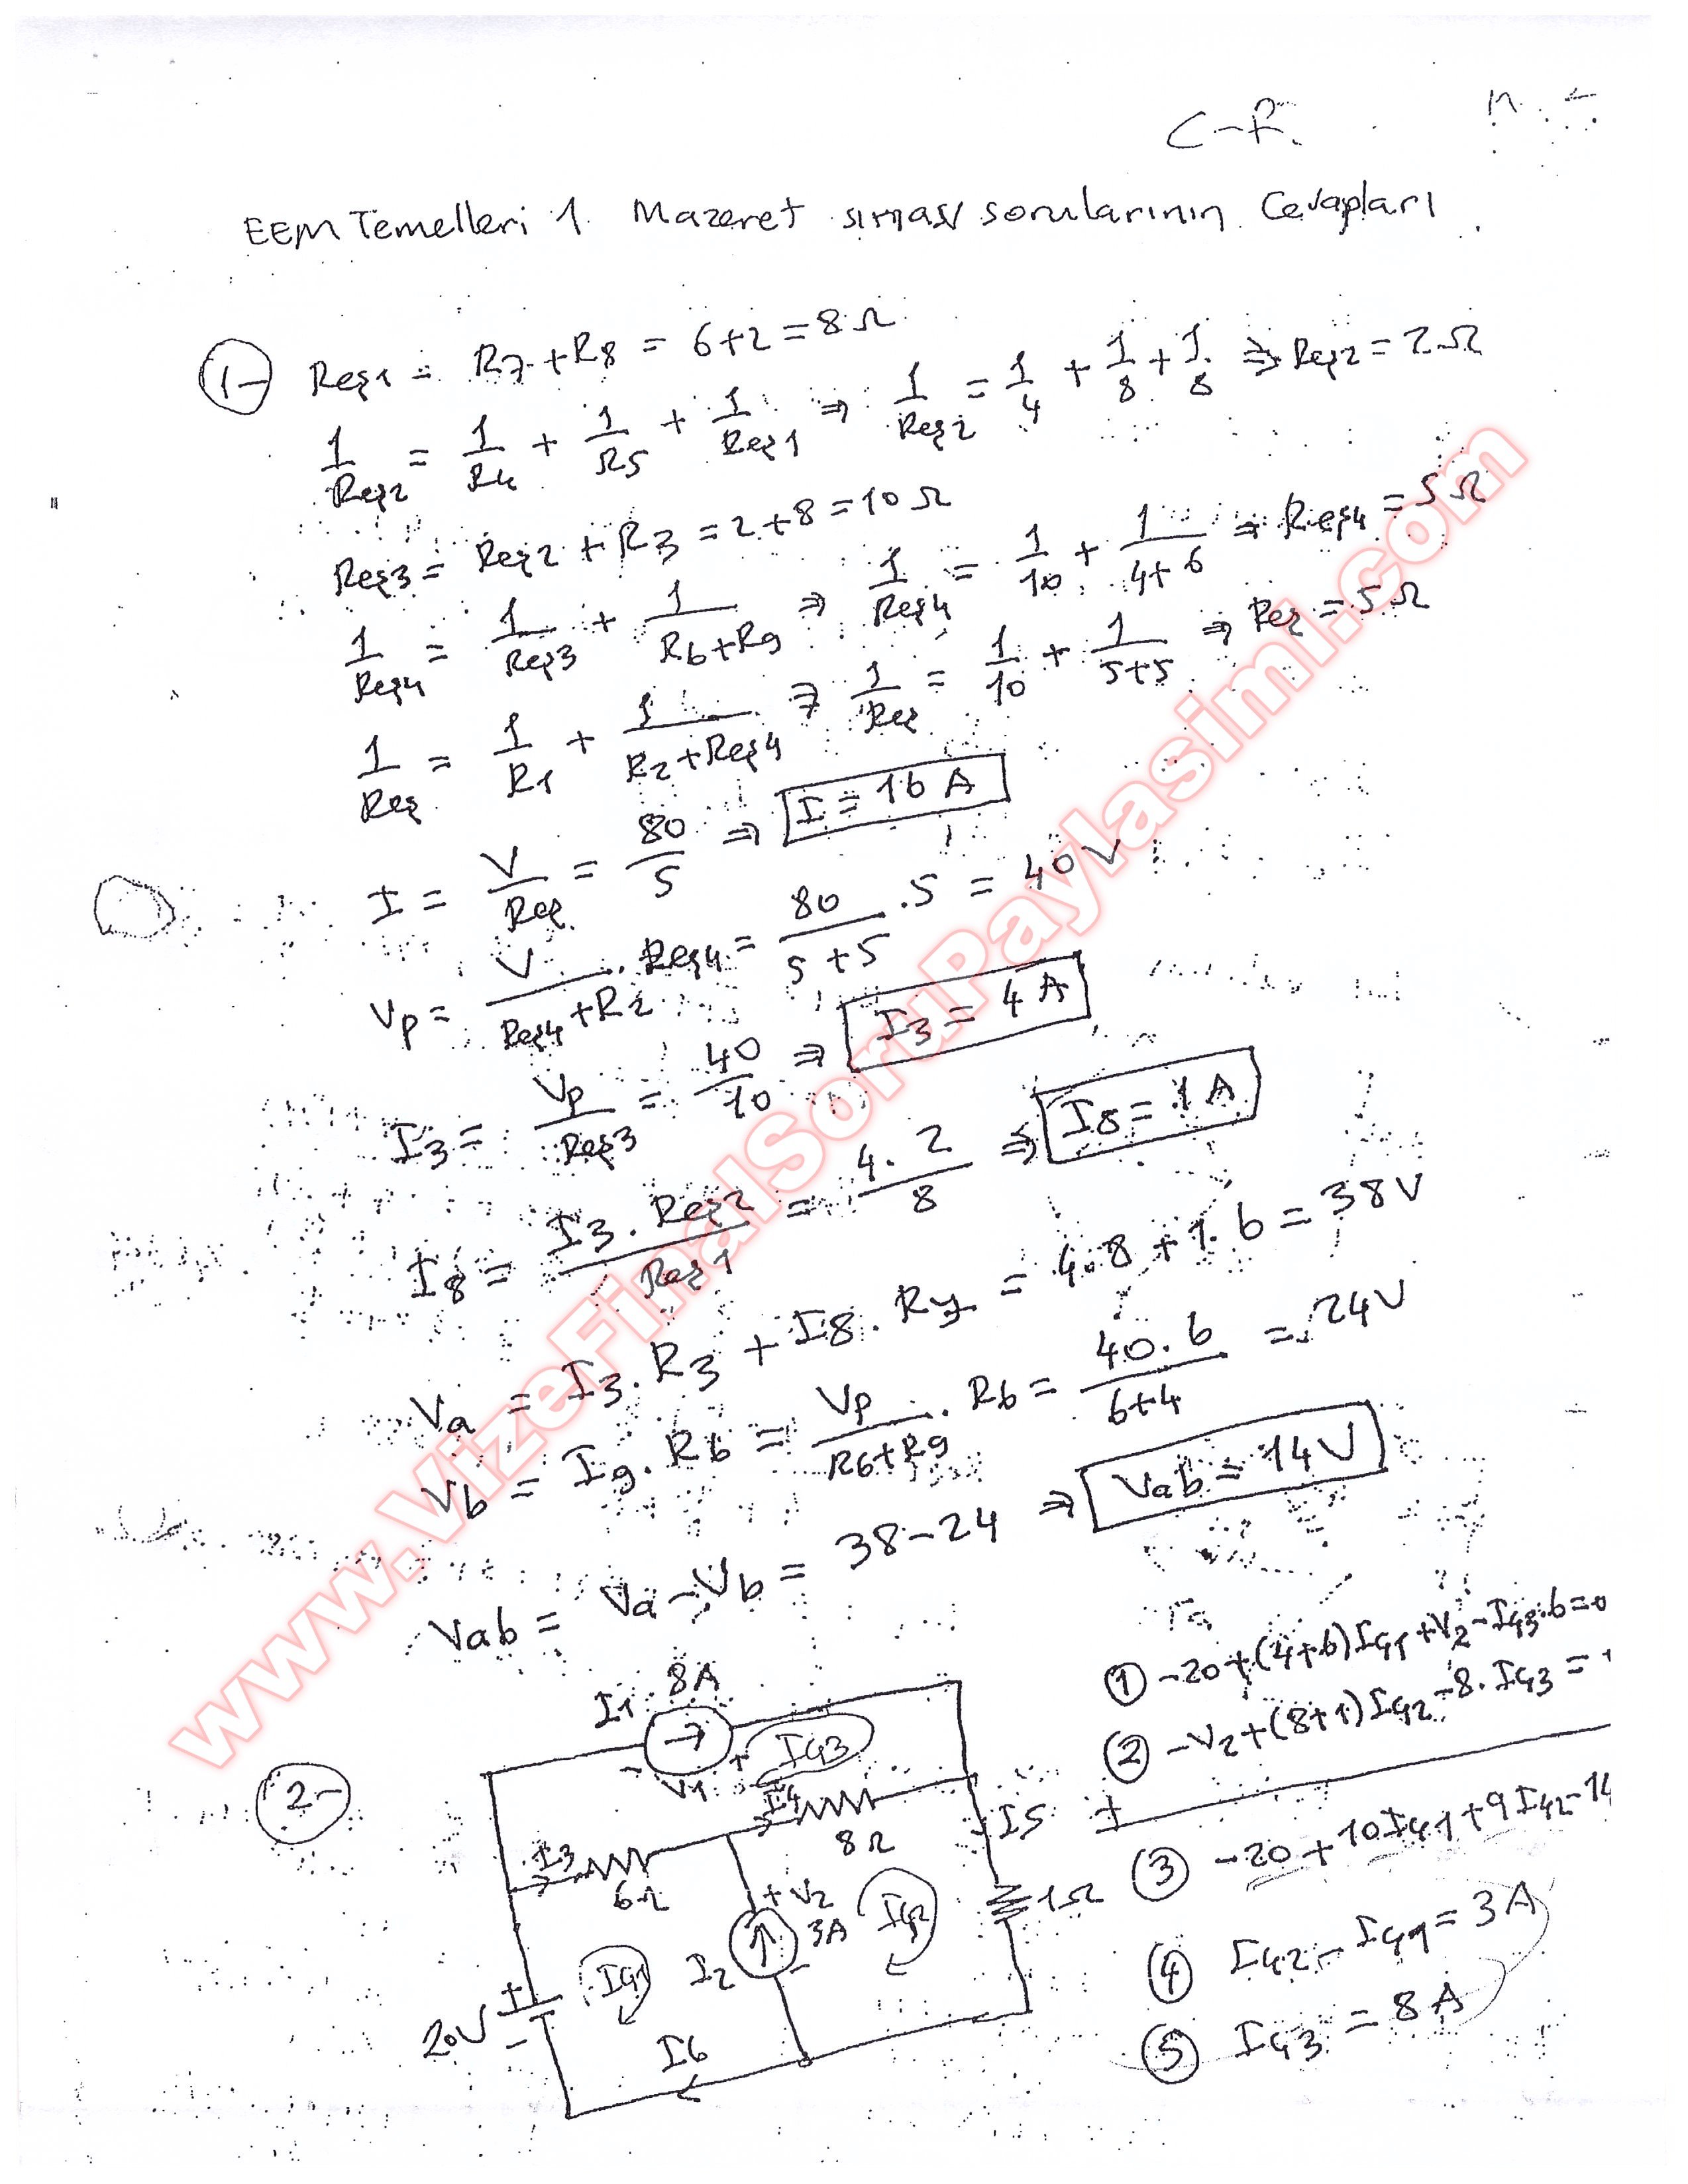 C-R.
EEM Temelleri 1. Mazeret sınavı sorularının Cevapları
1- Reş1 = R7 + R8 = 6+2 = 8Ω
1/Reş2 = 1/R4 + 1/R5 + 1/Reş1 ⇒ 1/Reş2 = 1/4 + 1/8 + 1/8 ⇒ Reş2 = 2Ω
Reş3 = Reş2 + R3 = 2+8 = 10Ω
1/Reş4 = 1/Reş3 + 1/R6+R9 ⇒ 1/Reş4 = 1/10 + 1/4+6 ⇒ Reş4 = 5Ω
1/Reş = 1/R1 + 1/R2+Reş4 ⇒ 1/Reş = 1/10 + 1/5+5 ⇒ Reş = 5Ω
I = V/Reş = 80/5 ⇒ I = 16 A
Vp = V/Reş4+R2 . Reş4 = 80/5+5 . 5 = 40V
I3 = Vp/Reş3 = 40/10 ⇒ I3 = 4 A
I8 = I3. Reş2/Reş1 = 4.2/8 ⇒ I8 = 1A
Va = I3. R3 + I8. R7 = 4.8 + 1.6 = 38V
Vb = I9. R6 = Vp/R6+R9 . R6 = 40.6/6+4 = 24V
Vab = Va - Vb = 38-24 ⇒ Vab = 14V
2-
I1 8A
- V1 +
Iç3
I3
6Ω
I4
8Ω
I5
1Ω
+ V2
3A
-
I2
Iç1
Iç2
20V
+
-
I6
① -20+(4+6)Iç1+V2-Iç3.6=0
② -V2+(8+1)Iç2-8.Iç3=
+
③ -20+10Iç1+9Iç2-14
④ Iç2-Iç1=3A
⑤ Iç3=8A
www.VizeFinalSoruPaylasimi.com